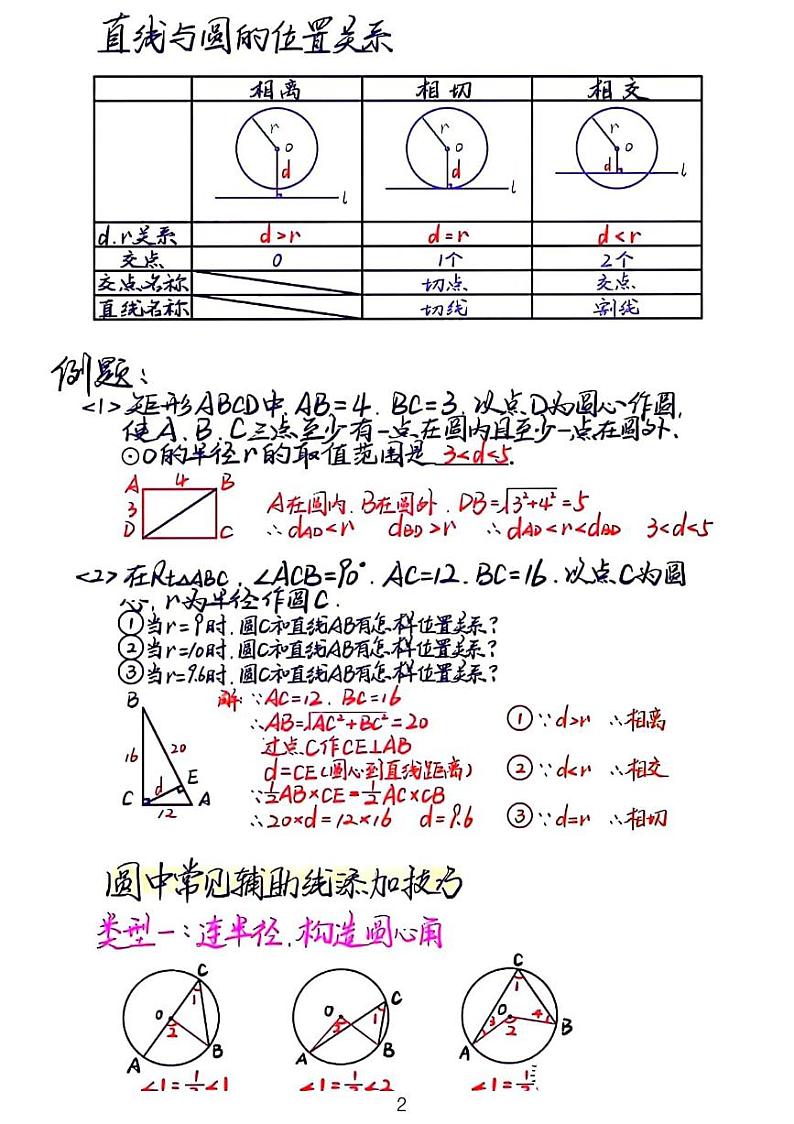 直线与圆的位置关系
相离 相切 相交
r O d l r O d l r O d l
d.r关系 d>r d=r d<r
交点 0 1个 2个
交点名称 切点 交点
直线名称 切线 割线
例题：
<1>矩形ABCD中.AB=4.BC=3.以点D为圆心作圆,
使A.B.C三点至少有一点在圆内且至少一点在圆外.
⊙O的半径r的取值范围是 3<d<5.
A 4 B
3
D C
A在圆内.B在圆外.DB=√3²+4²=5
∴dAD<r dBD>r ∴dAD<r<dBD 3<d<5
<2>在Rt△ABC,∠ACB=90°.AC=12.BC=16.以点C为圆
心,r为半径作圆C.
①当r=9时.圆C和直线AB有怎样位置关系?
②当r=10时.圆C和直线AB有怎样位置关系?
③当r=9.6时.圆C和直线AB有怎样位置关系?
B
16 20
d E
C A
12
解:∵AC=12.BC=16
∴AB=√AC²+BC²=20
过点C作CE⊥AB
d=CE(圆心到直线距离)
∵½AB×CE=½AC×CB
∴20×d=12×16 d=9.6
①∵d>r ∴相离
②∵d<r ∴相交
③∵d=r ∴相切
圆中常见辅助线添加技巧
类型一:连半径.构造圆心角
C 1 O 2 A B
C 1 O A B
C 1 O 3 2 4 A B
2